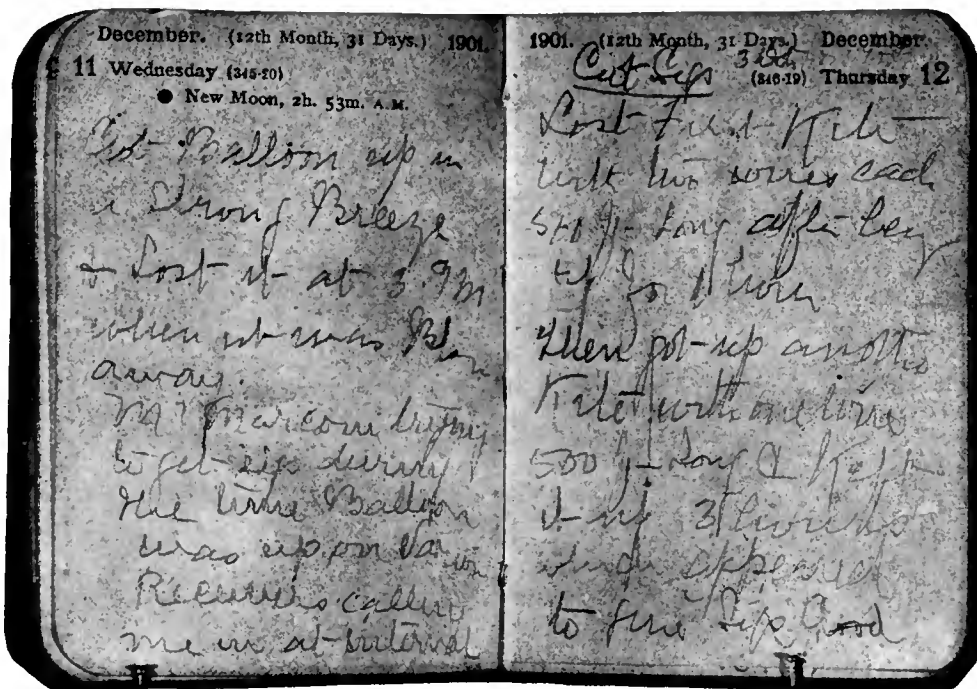 December. (12th Month, 31 Days.) 1901.
11 Wednesday (345-20)
● New Moon, 2h. 53m. A.M.
Got Balloon up in
a strong Breeze
& Lost it at 3 PM
when it was Blown
away.
Mr Marconi trying
to get sigs during
the time Balloon
was up on Various
Receivers calling
me in at interval
1901. (12th Month, 31 Days.) December
(346-19) Thursday 12
Got Sigs
Lost First Kite
with two wires each
long after being
up for 1 hour
then got up another
Kite with one wire
500 ft Long & Kept
it up 3 hours
which appeared
to give Sigs Good